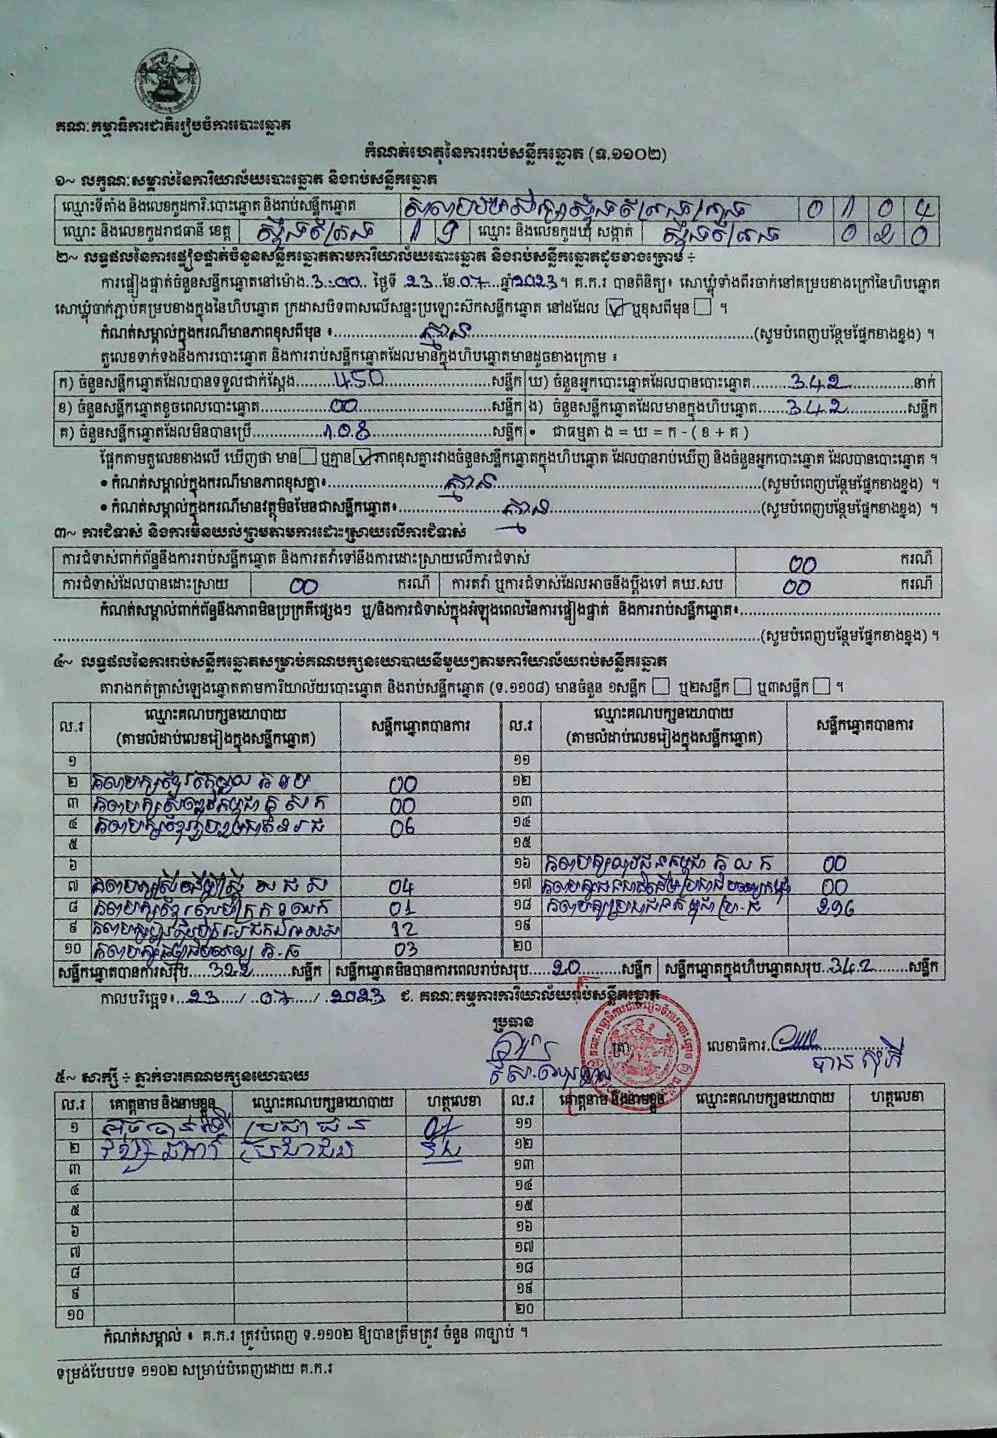 គណៈកម្មាធិការជាតិរៀបចំការបោះឆ្នោត
កំណត់ហេតុនៃការរាប់សន្លឹកឆ្នោត (ទ.១១០២)
១~ លក្ខណៈសម្គាល់នៃការិយាល័យបោះឆ្នោត និងរាប់សន្លឹកឆ្នោត
ឈ្មោះទីតាំង និងលេខកូដការិ.បោះឆ្នោត និងរាប់សន្លឹកឆ្នោត 0 1 0 4
ឈ្មោះ និងលេខកូដរាជធានី ខេត្ត ស្ទឹងត្រែង 1 9 ឈ្មោះ និងលេខកូដឃុំ សង្កាត់ ស្ទឹងត្រែង 0 2 0
២~ លទ្ធផលនៃការផ្ទៀងផ្ទាត់ចំនួនសន្លឹកឆ្នោតតាមការិយាល័យបោះឆ្នោត និងរាប់សន្លឹកឆ្នោតដូចខាងក្រោម ÷
ការផ្ទៀងផ្ទាត់ចំនួនសន្លឹកឆ្នោតនៅម៉ោង..3:00.. ថ្ងៃទី 23..ខែ.07...ឆ្នាំ2023។ គ.ក.រ បានពិនិត្យ៖ សោឃ្លុំទាំងពីរចាក់នៅគម្របខាងក្រៅនៃហិបឆ្នោត
សោឃ្លុំចាក់ភ្ជាប់គម្របខាងក្នុងនៃហិបឆ្នោត ក្រដាសបិទពាសលើសន្ទះប្រឡោះស៊កសន្លឹកឆ្នោត នៅដដែល ☑ ឬខុសពីមុន ☐ ។
កំណត់សម្គាល់ក្នុងករណីមានភាពខុសពីមុន ៖ គ្មាន (សូមបំពេញបន្ថែមផ្នែកខាងខ្នង) ។
តួលេខទាក់ទងនឹងការបោះឆ្នោត និងការរាប់សន្លឹកឆ្នោតដែលមានក្នុងហិបឆ្នោតមានដូចខាងក្រោម ៖
ក) ចំនួនសន្លឹកឆ្នោតដែលបានទទួលជាក់ស្តែង 450 សន្លឹក ឃ) ចំនួនអ្នកបោះឆ្នោតដែលបានបោះឆ្នោត 342 នាក់
ខ) ចំនួនសន្លឹកឆ្នោតខូចពេលបោះឆ្នោត 00 សន្លឹក ង) ចំនួនសន្លឹកឆ្នោតដែលមានក្នុងហិបឆ្នោត 342 សន្លឹក
គ) ចំនួនសន្លឹកឆ្នោតដែលមិនបានប្រើ 108 សន្លឹក • ជាធម្មតា ង = ឃ = ក - ( ខ + គ )
ផ្អែកតាមតួលេខខាងលើ ឃើញថា មាន ☐ ឬគ្មាន ☑ ភាពខុសគ្នារវាងចំនួនសន្លឹកឆ្នោតក្នុងហិបឆ្នោត ដែលបានរាប់ឃើញ និងចំនួនអ្នកបោះឆ្នោត ដែលបានបោះឆ្នោត ។
• កំណត់សម្គាល់ក្នុងករណីមានភាពខុសគ្នា៖ គ្មាន (សូមបំពេញបន្ថែមផ្នែកខាងខ្នង) ។
• កំណត់សម្គាល់ក្នុងករណីមានវត្ថុមិនមែនជាសន្លឹកឆ្នោត៖ គ្មាន (សូមបំពេញបន្ថែមផ្នែកខាងខ្នង) ។
៣~ ការជំទាស់ និងការមិនយល់ព្រមតាមការដោះស្រាយលើការជំទាស់
ការជំទាស់ពាក់ព័ន្ធនឹងការរាប់សន្លឹកឆ្នោត និងការតវ៉ាទៅនឹងការដោះស្រាយលើការជំទាស់ 00 ករណី
ការជំទាស់ដែលបានដោះស្រាយ 00 ករណី ការតវ៉ា ឬការជំទាស់ដែលអាចនឹងប្តឹងទៅ គឃ.សប 00 ករណី
កំណត់សម្គាល់ពាក់ព័ន្ធនឹងភាពមិនប្រក្រតីផ្សេងៗ ឬ/និងការជំទាស់ក្នុងអំឡុងពេលនៃការផ្ទៀងផ្ទាត់ និងការរាប់សន្លឹកឆ្នោត៖
(សូមបំពេញបន្ថែមផ្នែកខាងខ្នង) ។
៤~ លទ្ធផលនៃការរាប់សន្លឹកឆ្នោតសម្រាប់គណបក្សនយោបាយនីមួយៗតាមការិយាល័យរាប់សន្លឹកឆ្នោត
តារាងកត់ត្រាសំឡេងឆ្នោតតាមការិយាល័យបោះឆ្នោត និងរាប់សន្លឹកឆ្នោត (ទ.១១០៨) មានចំនួន ១សន្លឹក ☐ ឬ២សន្លឹក ☐ ឬ៣សន្លឹក ☐ ។
ល.រ ឈ្មោះគណបក្សនយោបាយ (តាមលំដាប់លេខរៀងក្នុងសន្លឹកឆ្នោត) សន្លឹកឆ្នោតបានការ ល.រ ឈ្មោះគណបក្សនយោបាយ (តាមលំដាប់លេខរៀងក្នុងសន្លឹកឆ្នោត) សន្លឹកឆ្នោតបានការ
១ ១១
២ 00 ១២
៣ 00 ១៣
៤ 06 ១៤
៥ ១៥
៦ ១៦ 00
៧ 04 ១៧ 00
៨ 01 ១៨ គណបក្សប្រជាជនកម្ពុជា 296
៩ 12 ១៩
១០ 03 ២០
សន្លឹកឆ្នោតបានការសរុប 322 សន្លឹក សន្លឹកឆ្នោតមិនបានការពេលរាប់សរុប 20 សន្លឹក សន្លឹកឆ្នោតក្នុងហិបឆ្នោតសរុប 342 សន្លឹក
កាលបរិច្ឆេទ៖ 23 / 07 / 2023 ជ. គណៈកម្មការការិយាល័យរាប់សន្លឹកឆ្នោត
ប្រធាន
(ត្រា) លេខាធិការ
៥~ សាក្សី ÷ ភ្នាក់ងារគណបក្សនយោបាយ
ល.រ គោត្តនាម និងនាមខ្លួន ឈ្មោះគណបក្សនយោបាយ ហត្ថលេខា ល.រ គោត្តនាម និងនាមខ្លួន ឈ្មោះគណបក្សនយោបាយ ហត្ថលេខា
១ ប្រជាជន ១១
២ ប្រជាជន ១២
៣ ១៣
៤ ១៤
៥ ១៥
៦ ១៦
៧ ១៧
៨ ១៨
៩ ១៩
១០ ២០
កំណត់សម្គាល់ ៖ គ.ក.រ ត្រូវបំពេញ ទ.១១០២ ឱ្យបានត្រឹមត្រូវ ចំនួន ៣ច្បាប់ ។
ទម្រង់បែបបទ ១១០២ សម្រាប់បំពេញដោយ គ.ក.រ